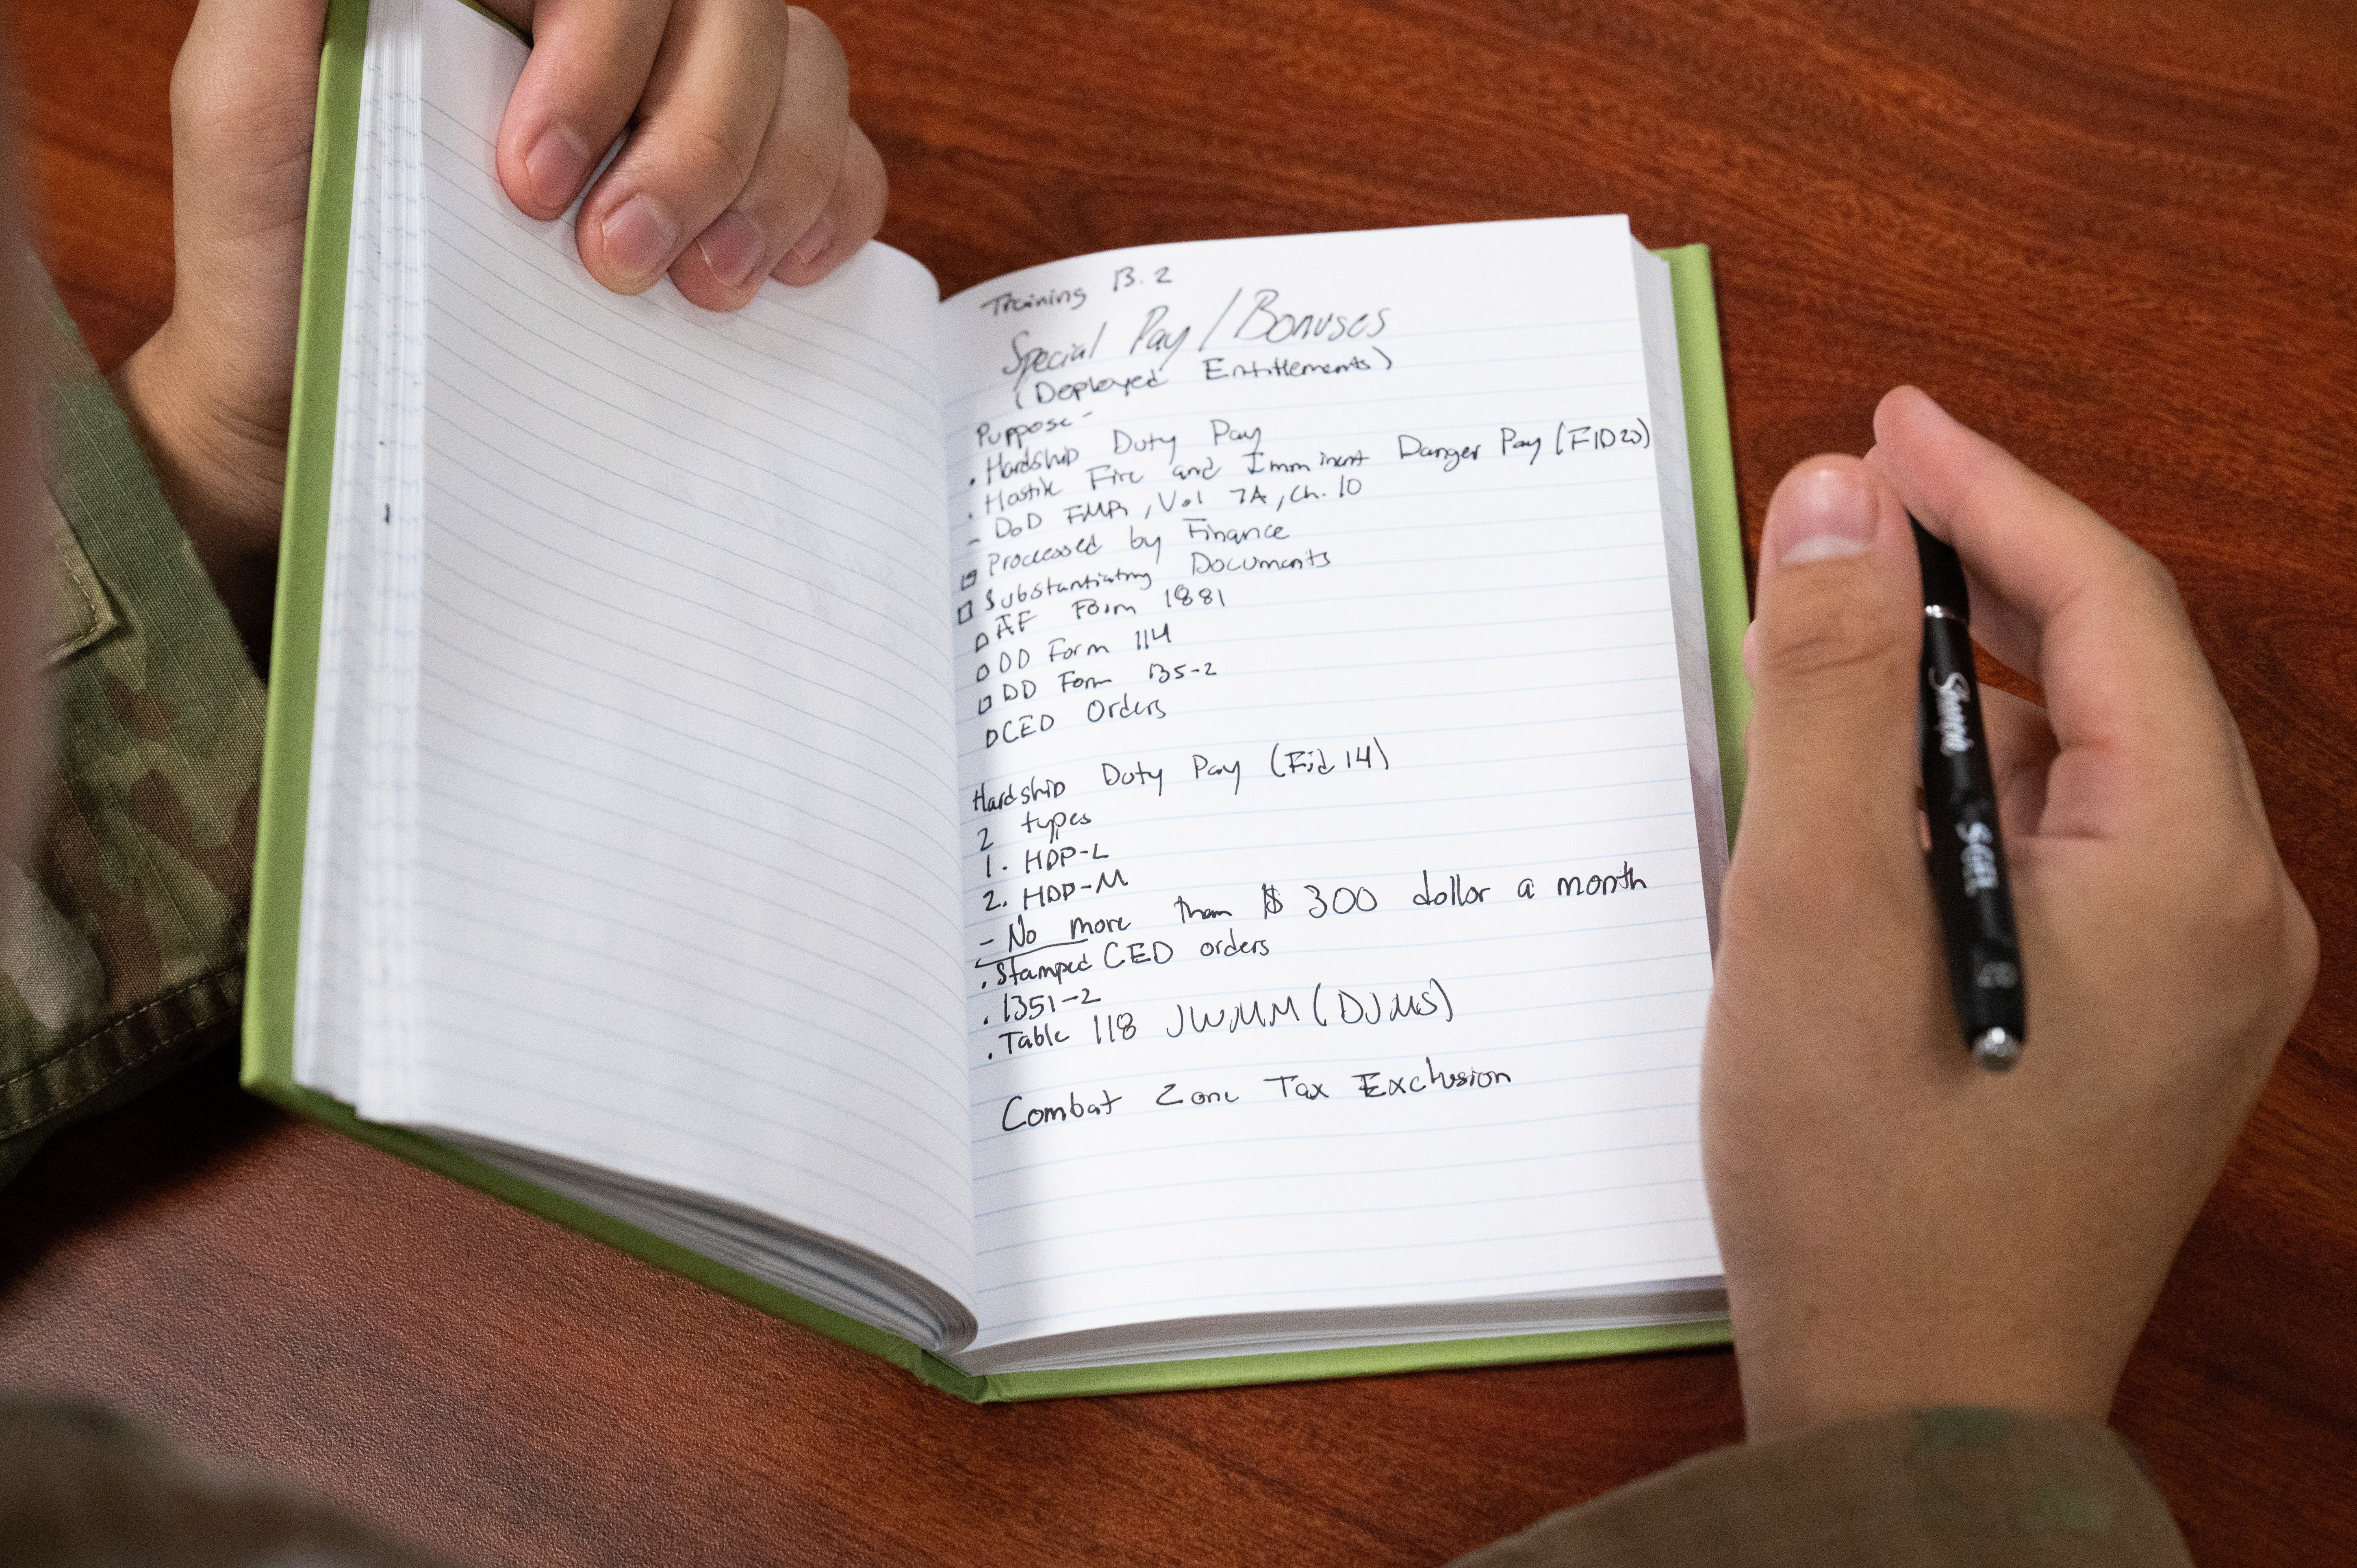 Training B.2
Special Pay / Bonuses
(Deployed Entitlements)
Puppose -
. Hardship Duty Pay
. Hostile Fire and Imminent Danger Pay (FID20)
- DoD FMR, Vol 7A, Ch. 10
Processed by Finance
Substantiating Documents
AF Form 1881
DD Form 114
DD Form 135-2
CED Orders
Hardship Duty Pay (Fid 14)
2 types
1. HDP-L
2. HDP-M
- No more than $300 dollar a month
. Stamped CED orders
. 1351-2
. Table 118 JWMM (DJMS)
Combat Zone Tax Exclusion